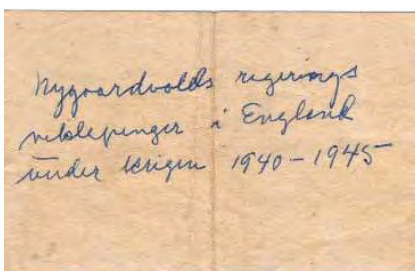 Nygaardvolds regjerings
vekslepenger i England
under krigen 1940-1945